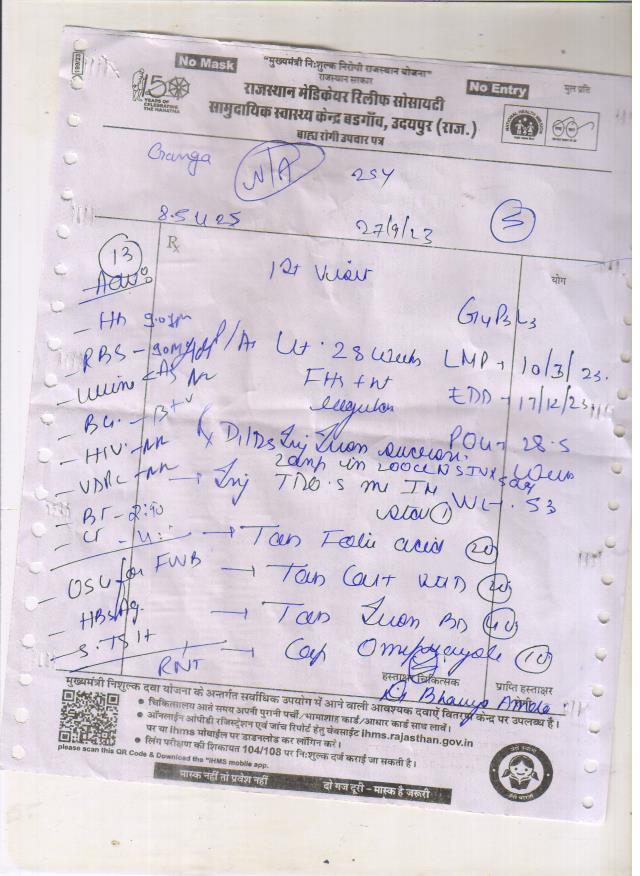 No Mask
"मुख्यमंत्री निःशुल्क निरोगी राजस्थान योजना"
राजस्थान सरकार
No Entry
मूल प्रति
150
YEARS OF
CELEBRATING
THE MAHATMA
राजस्थान मेडिकेयर रिलीफ सोसायटी
सामुदायिक स्वास्थ्य केन्द्र बडगाँव, उदयपुर (राज.)
बाह्य रोगी उपचार पत्र
Ganga
N/A
25Y
27/9/23
Rx
13
Adv:
1st Visit
योग
Hb 9.0gm
G4P3L3
RBS - 90mg
P/A Ut. 28 Week
LMP - 10/3/23.
FHS + nt
regular
EDD - 17/12/23
BG. - B+v
HIV - NR
Rx
POG - 28.5
Week
VDRL - NR
2amp in 200cc NS IVX
→ Inj
IM
Wt. 53
BT - 2:90
Stat 1
→ Tab Folic acid 20
USG for FWB
→ Tab
HBsAg.
→ Tab Iron BD
S. TSH
→ Cap Omeprazole 10
RNT
हस्ताक्षर चिकित्सक
प्राप्ति हस्ताक्षर
मुख्यमंत्री निःशुल्क दवा योजना के अन्तर्गत सर्वाधिक उपयोग में आने वाली आवश्यक दवाएँ वितरण केन्द्र पर उपलब्ध है।
• चिकित्सालय आते समय अपनी पुरानी पर्ची/भामाशाह कार्ड/आधार कार्ड साथ लावें।
• ऑनलाईन आईपीडी रजिस्ट्रेशन एवं जांच रिपोर्ट हेतु वेबसाईट ihms.rajasthan.gov.in
पर या ihms मोबाईल पर डाउनलोड कर लॉगिन करें।
• लिंग परीक्षण की शिकायत 104/108 पर निःशुल्क दर्ज कराई जा सकती है।
please scan this QR Code & Download the "IHMS mobile app.
मास्क नहीं तो प्रवेश नहीं
दो गज दूरी - मास्क है जरूरी